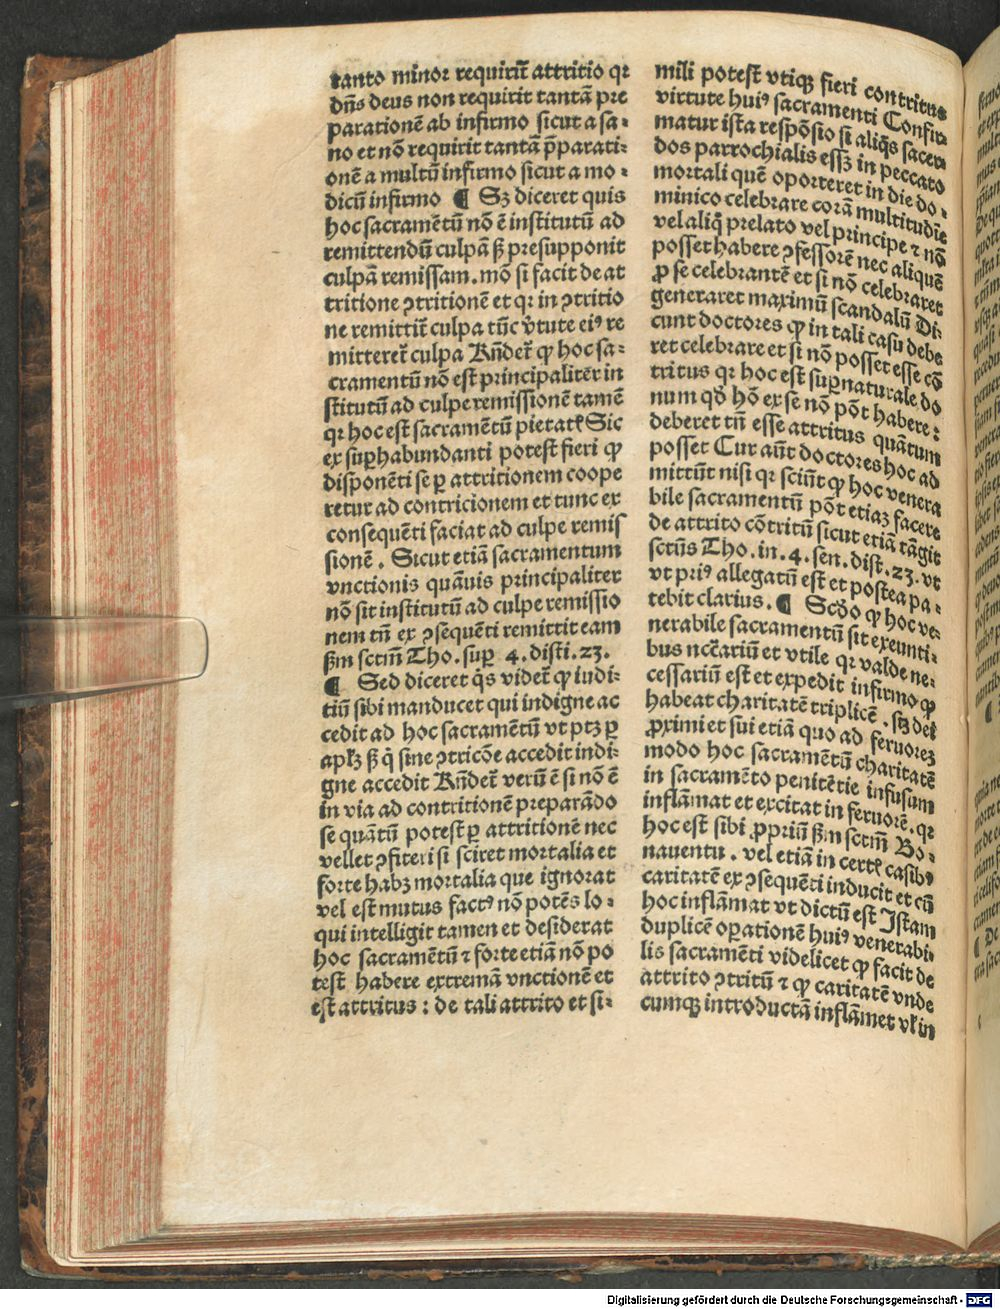 tanto minor requirit̃ attritio qꝛ
dñs deus non requirit tantã pre
parationẽ ab infirmo sicut a sa⸗
no et nõ requirit tantã p̃parati⸗
onẽ a multũ infirmo sicut a mo⸗
dicũ infirmo ¶ Sꝫ diceret quis
hoc sacramẽtũ nõ ẽ institutũ ad
remittendũ culpã sꝫ presupponit
culpã remissam. mõ si facit de at
tritione ꝯtritionẽ et qꝛ in ꝯtritio
ne remittit̃ culpa tũc v̾tute eiꝰ re
mitteret̃ culpa Rñdet̃ ꝙ hoc sa⸗
cramentũ nõ est principaliter in
stitutũ ad culpe remissionẽ tamẽ
qꝛ hoc est sacramẽtũ pietatꝭ Sic
ex suꝑhabundanti potest fieri ꝙ
disponẽti se ꝑ attritionem coope
retur ad contricionem et tunc ex
consequẽti faciat ad culpe remis
sionẽ. Sicut etiã sacramentum
vnctionis quãuis principaliter
nõ sit institutũ ad culpe remissio
nem tñ ex ꝯsequẽti remittit eam
ẜm sctm̃ Tho. suꝑ 4. disti. 23.
¶ Sed diceret q̃s videt̃ ꝙ iudi⸗
tiũ sibi manducet qui indigne ac
cedit ad hoc sacramẽtũ vt ptꝫ ꝑ
apl̃ꝫ sꝫ q̃ sine ꝯtricõe accedit indi⸗
gne accedit Rñdet̃ verũ ẽ si nõ ẽ
in via ad contritionẽ preparãdo
se quãtũ potest ꝑ attritionẽ nec
vellet ꝯfiteri si sciret mortalia et
forte habꝫ mortalia que ignorat
vel est mutus factꝰ nõ potẽs lo⸗
qui intelligit tamen et desiderat
hoc sacramẽtũ ⁊ forte etiã nõ po
test habere extremã vnctionẽ et
est attritus : de tali attrito et si⸗
mili potest vtiqꝫ fieri contritus
virtute huiꝰ sacramenti Confir⸗
matur ista respõsio si aliq̃s sacer⸗
dos parrochialis essꝫ in peccato
mortali quẽ oporteret in die do⸗
minico celebrare corã multitudĩe
vel aliq̃ prelato vel principe ⁊ nõ
posset habere ꝯfessorẽ nec aliquẽ
ꝓ se celebrantẽ et si nõ celebraret
generaret maximũ scandalũ Di⸗
cunt doctores ꝙ in tali casu debe
ret celebrare et si nõ posset esse cõ
tritus qꝛ hoc est suꝑnaturale do
num qḋ hõ ex se nõ põt habere :
deberet tñ esse attritus quãtum
posset Cur aũt doctores hoc ad
mittũt nisi qꝛ sciũt ꝙ hoc venera
bile sacramentũ põt etiaꝫ facere
de attrito cõtritũ sicut etiã tãgit
sctũs Tho. in. 4. sen. dist. 23. vt
vt priꝰ allegatũ est et postea pa⸗
tebit clarius. ¶ Scḋo ꝙ hoc ve⸗
nerabile sacramentũ sit exeunti⸗
bus ncc̃ariũ et vtile qꝛ valde ne⸗
cessariũ est et expedit infirmo ꝙ
habeat charitatẽ triplicẽ . sꝫ dei
ꝓximi et sui etiã quo ad feruorez
modo hoc sacramẽtũ charitatẽ
in sacramẽto penitẽtie infusum
inflãmat et excitat in feruorẽ. qꝛ
hoc est sibi ꝓpriũ ẜm sctm̃ Bo⸗
nauentu . vel etiã in certꝭ casibꝰ
caritatẽ ex ꝯsequẽti inducit et cũ
hoc inflãmat vt dictũ est Istam
duplicẽ oꝑationẽ huiꝰ venerabi⸗
lis sacramẽti videlicet ꝙ facit de
attrito ꝯtritũ ⁊ ꝙ caritatẽ vnde
cumqꝫ introductã inflãmet vl̃ in
Digitalisierung gefördert durch die Deutsche Forschungsgemeinschaft - DFG